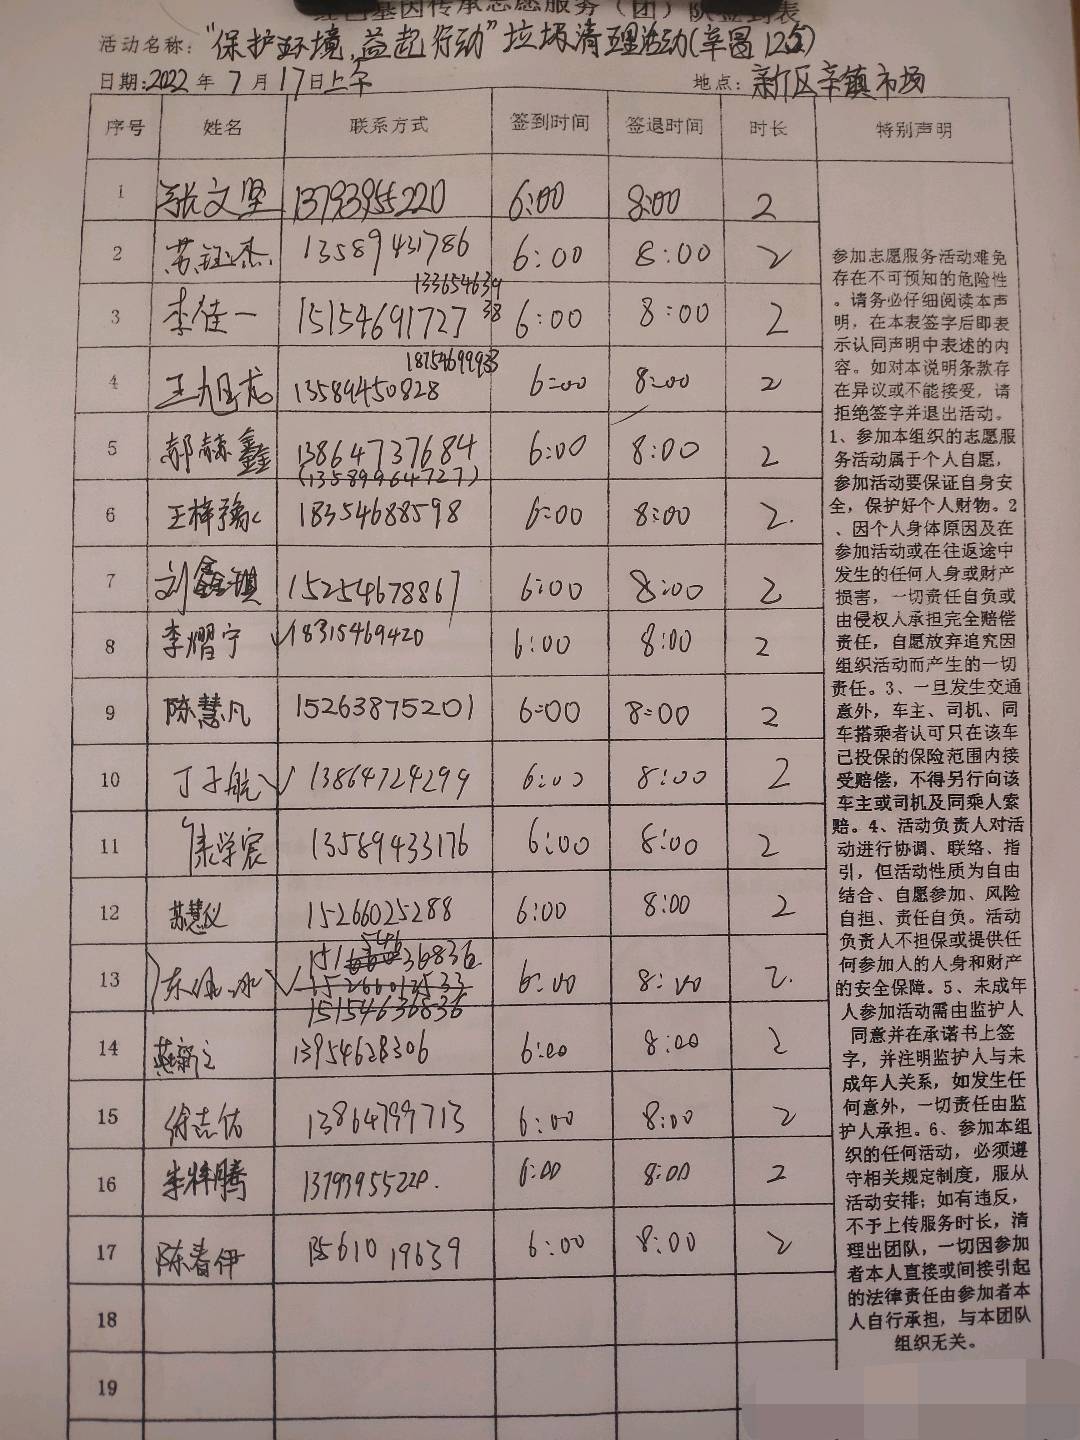 红色基因传承志愿服务（团）队签到表
活动名称："保护环境,益起行动"垃圾清理活动(辛置12组)
日期:2022年7月17日上午 地点:新区辛镇市场
序号 姓名 联系方式 签到时间 签退时间 时长 特别声明
1 张文坚 13793955220 6:00 8:00 2
2 苏钰杰 13589431786 6:00 8:00 2
3 李佳一 15154691727 1336546393938 6:00 8:00 2
4 王旭龙 13589450828 18754699933 6:00 8:00 2
5 郝赫鑫 13864737684 (13589964727) 6:00 8:00 2
6 王梓豫 18354688598 6:00 8:00 2.
7 刘鑫琪 15254678867 6:00 8:00 2
8 李熠宁 18315469420 6:00 8:00 2
9 陈慧凡 15263875201 6:00 8:00 2
10 丁子航 13864724299 6:00 8:00 2
11 陈学宸 13589433176 6:00 8:00 2
12 苏慧仪 15266025288 6:00 8:00 2
13 15154636836 6:00 8:00 2.
14 13954628306 6:00 8:00 2
15 徐志佑 13864799713 6:00 8:00 2
16 李梓腾 13793955220. 6:00 8:00 2
17 陈春伊 13561019639 6:00 8:00 2
18
19
参加志愿服务活动难免
存在不可预知的危险性
。请务必仔细阅读本声
明，在本表签字后即表
示认同声明中表述的内
容。如对本说明条款存
在异议或不能接受，请
拒绝签字并退出活动。
1、参加本组织的志愿服
务活动属于个人自愿，
参加活动要保证自身安
全，保护好个人财物。2
、因个人身体原因及在
参加活动或在往返途中
发生的任何人身或财产
损害，一切责任自负或
由侵权人承担完全赔偿
责任，自愿放弃追究因
组织活动而产生的一切
责任。3、一旦发生交通
意外，车主、司机、同
车搭乘者认可只在该车
已投保的保险范围内接
受赔偿，不得另行向该
车主或司机及同乘人索
赔。4、活动负责人对活
动进行协调、联络、指
引，但活动性质为自由
结合、自愿参加、风险
自担、责任自负。活动
负责人不担保或提供任
何参加人的人身和财产
的安全保障。5、未成年
人参加活动需由监护人
同意并在承诺书上签
字，并注明监护人与未
成年人关系，如发生任
何意外，一切责任由监
护人承担。6、参加本组
织的任何活动，必须遵
守相关规定制度，服从
活动安排；如有违反，
不予上传服务时长，清
理出团队，一切因参加
者本人直接或间接引起
的法律责任由参加者本
人自行承担，与本团队
组织无关。